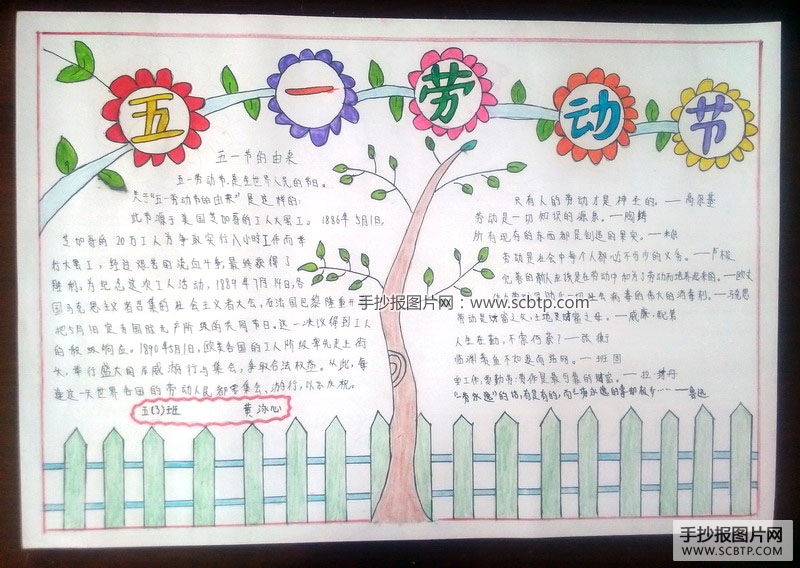 五一劳动节
五一节的由来
五一劳动节是全世界人民的节日。
关于"五一劳动节的由来"是这样的:
此节源于美国芝加哥的工人大罢工。1886年5月1日,
芝加哥的20万工人为争取实行八小时工作而举
行大罢工,经过艰苦的流血斗争,最终获得了
胜利。为纪念这次工人活动,1889年7月14日,各
国马克思主义者召集的社会主义者大会,在法国巴黎隆重开
把5月1日定为国际无产阶级的共同节日。这一决议得到工人
的积极响应。1890年5月1日,欧美各国的工人阶级率先走上街
头,举行盛大的示威游行与集会,争取合法权益。从此,每
逢这一天世界各国的劳动人民都要集会、游行,以示庆祝。
五(3)班 黄泳心
只有人的劳动才是神圣的。——高尔基
劳动是一切知识的源泉。——陶铸
所有现存的东西都是创造的果实。——米尔
劳动是社会中每个人都必不可少的义务。——卢梭
完善的新人应该是在劳动中和为了劳动而培养起来的。——欧文
劳动是财富之父,土地是财富之母。——威廉·配第
人生在勤,不索何获?——张衡
临渊羡鱼不如退而结网。——班固
——鲁迅
手抄报图片网:www.scbtp.com
手抄报图片网
WWW.SCBTP.COM